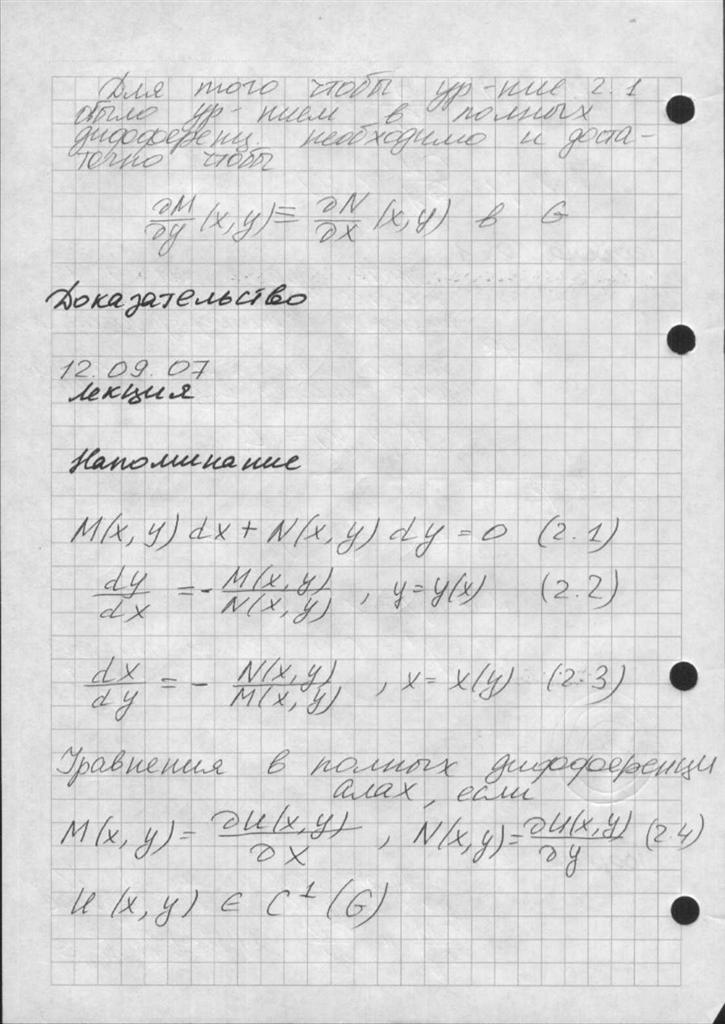 Для того чтобы ур-ние 2.1
было ур-нием в полных
дифференц. необходимо и доста-
точно чтобы
∂M/∂y (x, y) ≡ ∂N/∂x (x, y) в G
Доказательство
12.09.07
лекция
Напоминание
M(x, y) dx + N(x, y) dy = 0 (2.1)
dy/dx = - M(x, y)/N(x, y) , y = y(x) (2.2)
dx/dy = - N(x, y)/M(x, y) , x = x(y) (2.3)
Уравнения в полных дифференци
алах, если
M(x, y) = ∂U(x, y)/∂x , N(x, y) = ∂U(x, y)/∂y (2.4)
U(x, y) ∈ C¹(G)